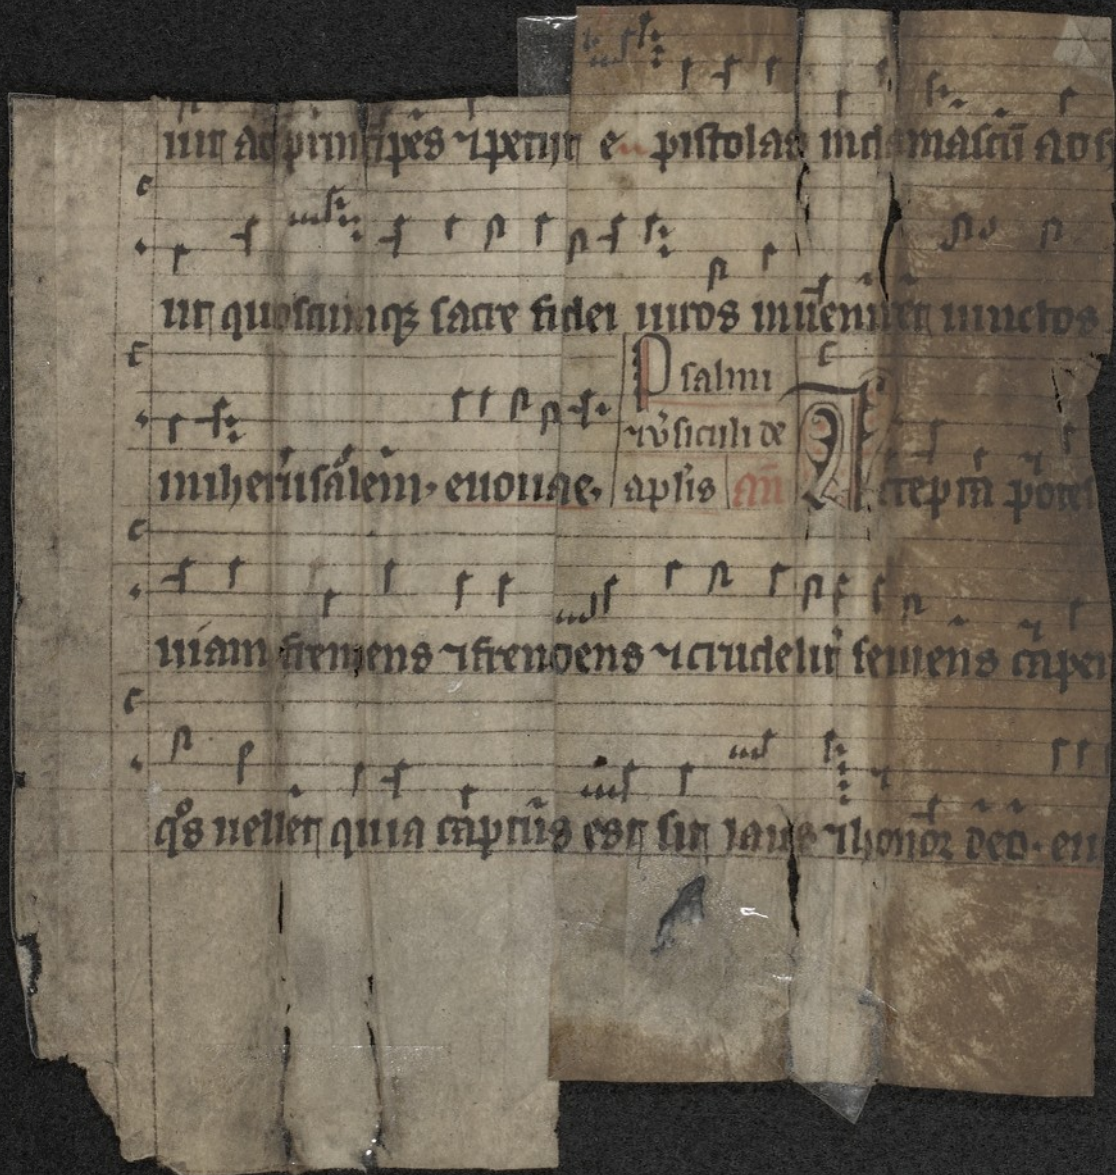 uit ad principes ⁊ petiit e pistolas in damascū ad s
ut quoscumqꝫ sacre fidei uiros inueniret uinctos
Psalmi
⁊ v̉siculi de
in iherusalem. euouae. apl̉is añ Accepta potes
uiam fremens ⁊ frendens ⁊ crudelit̉ seuiens cāpei
qͦs uellet quia captus est sit laus ⁊ honor deo. eu